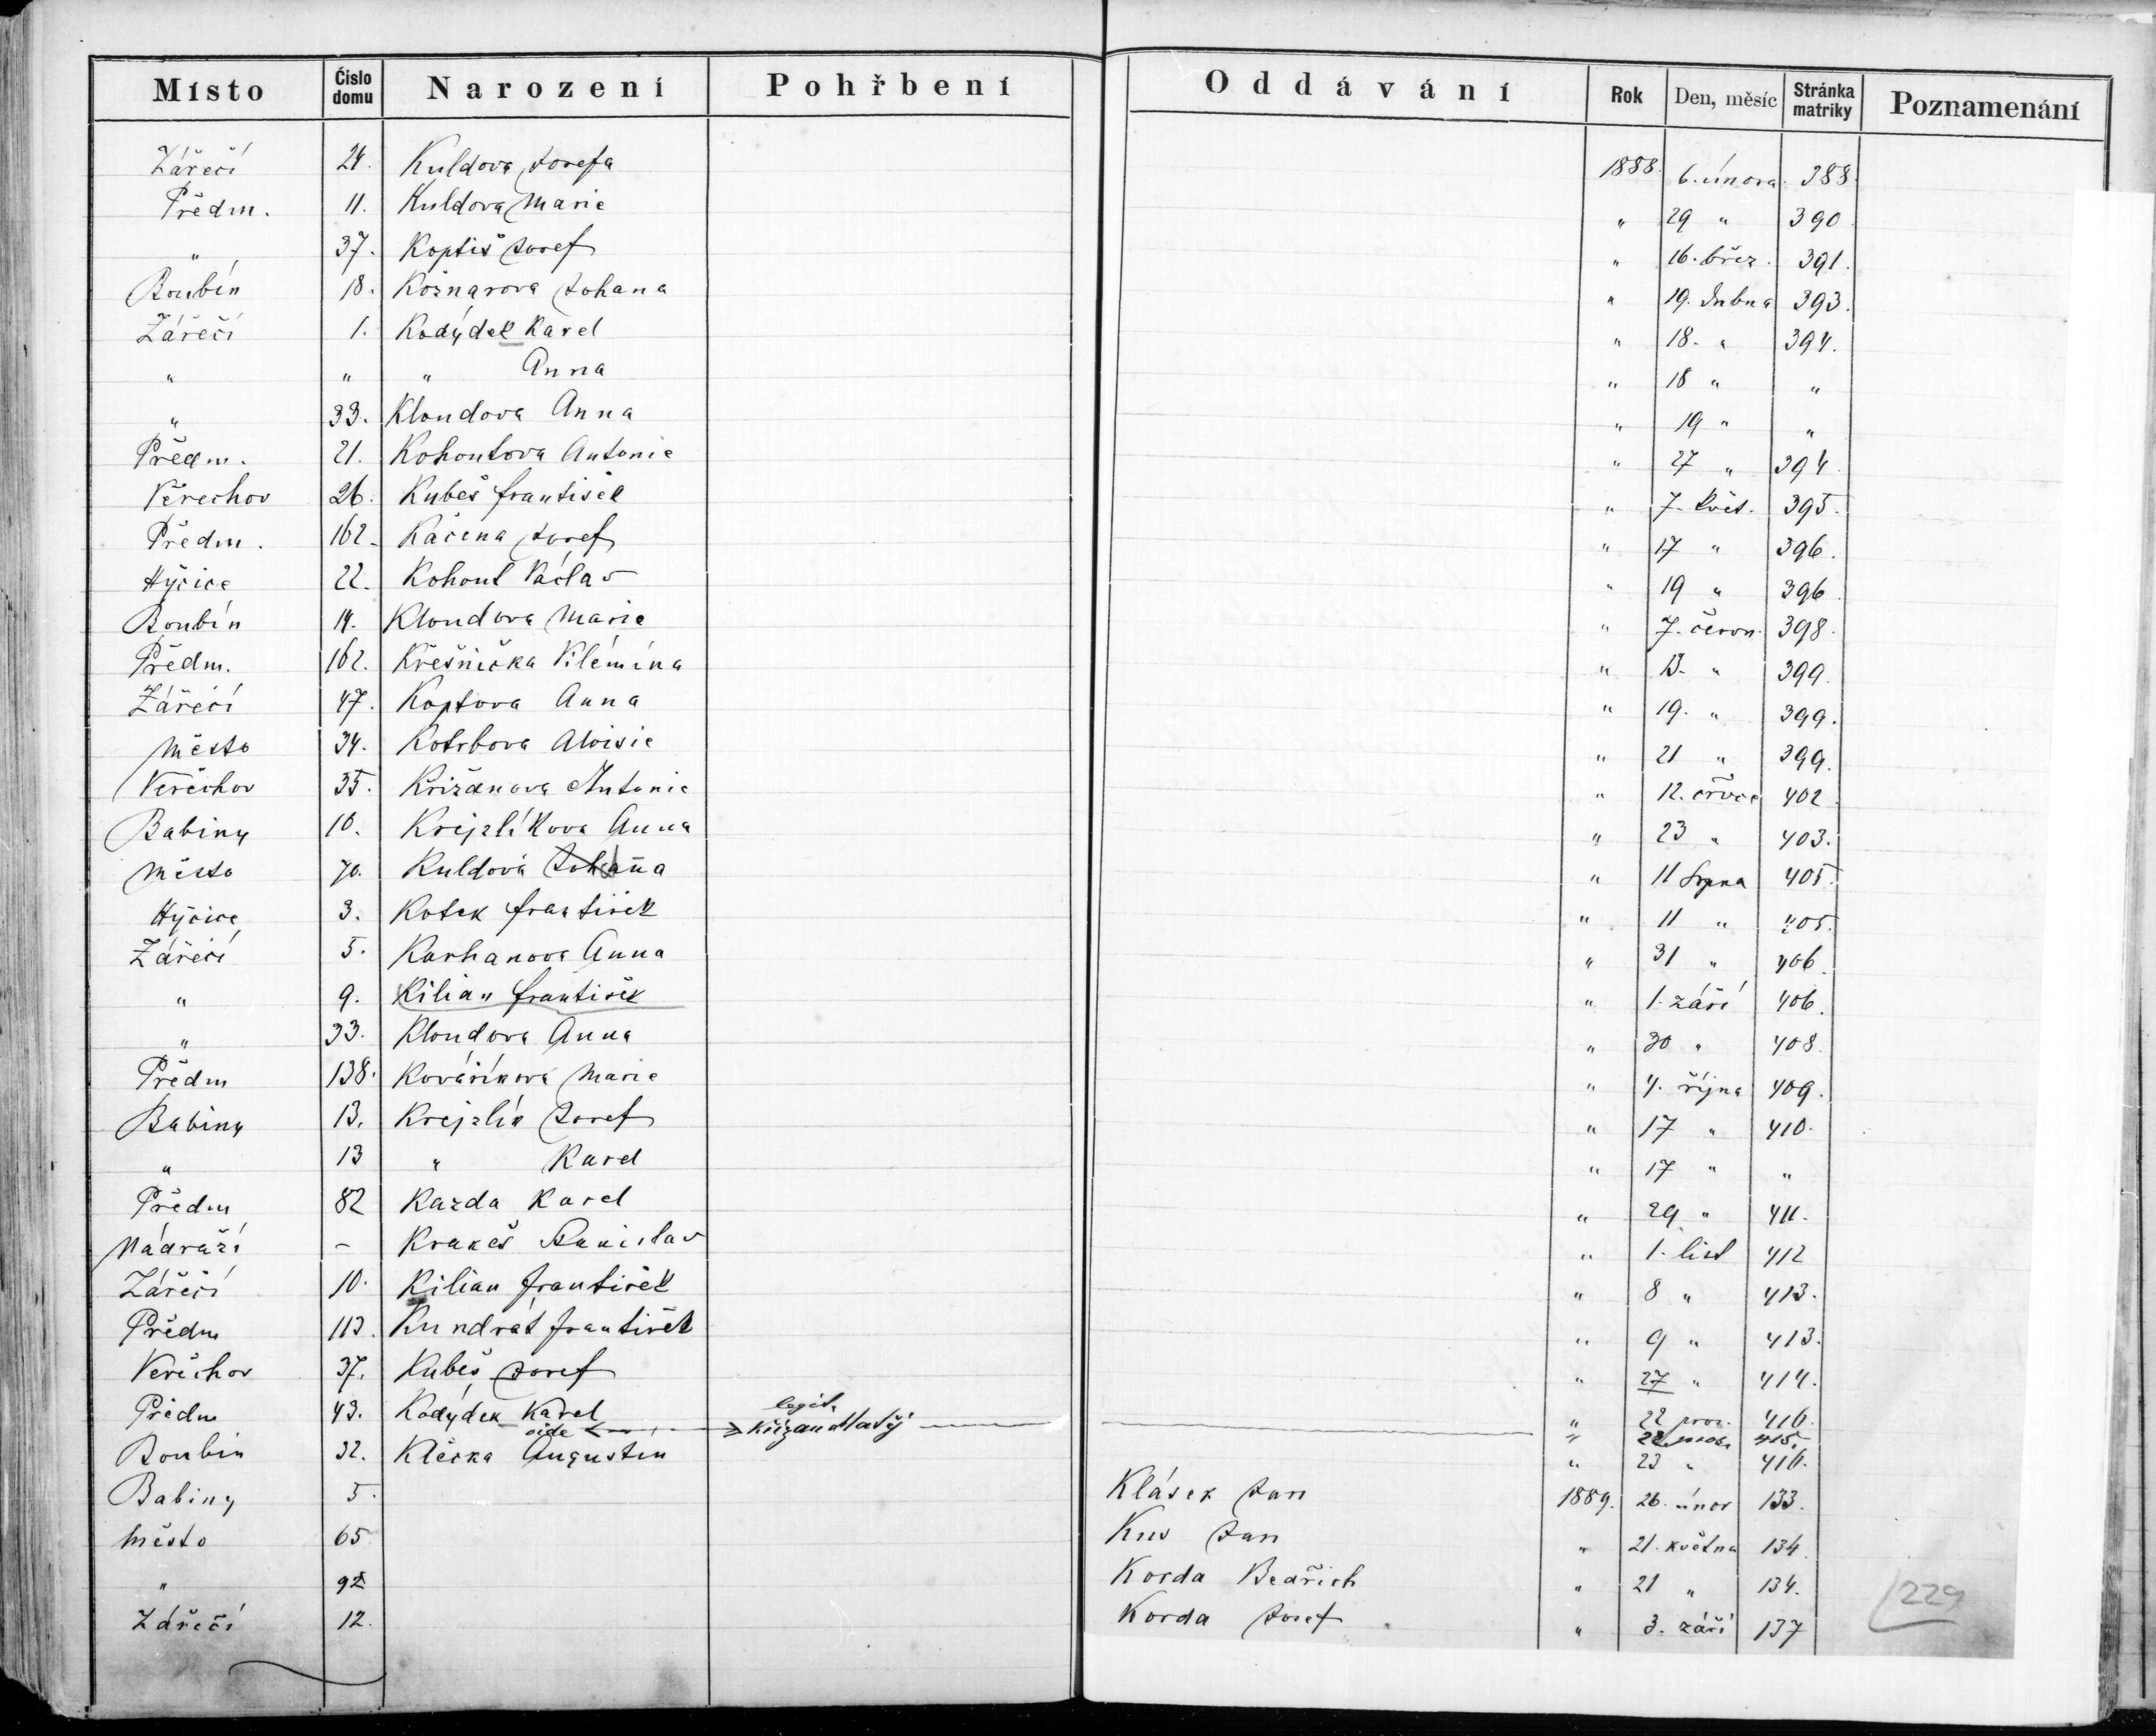 Místo Číslo domu Narození Pohřbení Oddávání Rok Den, měsíc Stránka matriky Poznamenání
Zářečí 24. Kuldova Josefa 1888. 6. února 388.
Předm. 11. Kuldova Marie " 29 " 390
" 37. Koptiš Josef " 16. břez. 391.
Boubín 18. Kožnarova Johana " 19. dubna 393.
Zářečí 1. Kodýdek Karel " 18. " 394.
" " " Anna " 18 " "
" 33. Kloudova Anna " 19 " "
Předm. 21. Kohoutova Antonie " 27 " 394.
Věrechov 26. Kubeš František " 7. květ. 395.
Předm. 162. Kačena Josef " 17 " 396.
Hýčice 22. Kohout Václav " 19 " 396
Boubín 14. Kloudova Marie " 7. červn. 398.
Předm. 162. Křesnička Vilémína " 13. " 399.
Zářečí 47. Koptova Anna " 19. " 399.
Město 34. Kotrbova Aloisie " 21 " 399.
Věřechov 35. Křižanova Antonie " 12. črvce 402
Babiny 10. Krejzlíkova Anna " 23 " 403.
Město 70. Kuldová Johanna " 11 srpna 405.
Hýčice 3. Kotek František " 11 " 405.
Zářečí 5. Karhanova Anna " 31 " 406.
" 9. Kilian František " 1. září 406.
" 33. Kloudova Anna " 30 " 408.
Předm 138. Kovaříkova Marie " 4. října 409.
Babiny 13. Krejzlík Josef " 17 " 410.
" 13 " Karel " 17 " "
Předm 82 Kazda Karel " 29 " 411.
Nádraží – Krakeš Stanislav " 1. list 412
Zářečí 10. Kilian František " 8 " 413.
Předm 113. Kundrát František " 9 " 413.
Veřechov 37. Kubeš Josef " 27 " 414.
Předm 43. Kodýdek Karel " 22 pros. 416.
vide legit. Křižan Matěj " 22. pros. 415.
Boubín 32. Klečka Augustin " 23 " 416.
Babiny 5. Klásek Jan 1889. 26. únor 133.
Město 65 Kus Jan " 21. května 134.
" 92 Korda Bedřich " 21 " 134.
Zářečí 12. Korda Josef " 3. září 137
229